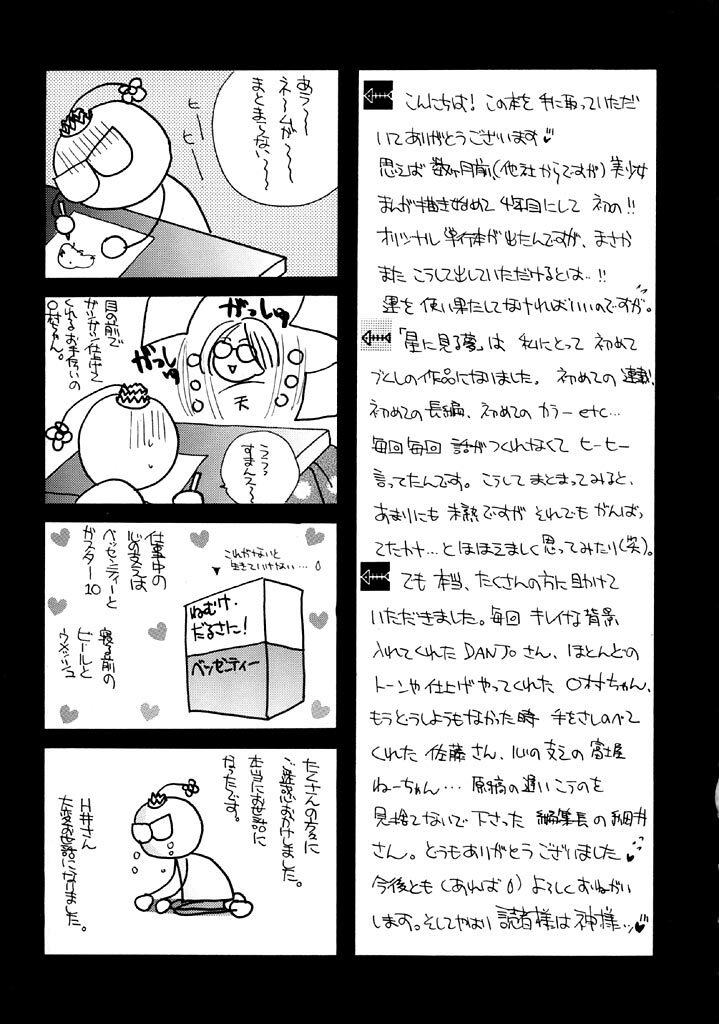 こんにちは! この本を手に取っていただ
いてありがとうございます♥
思えば数ヶ月前、(他社からですが)美少女
まんが描き始めて4年目にして初の!!
オリジナル単行本が出たんですが、まさか
またこうして出していただけるとは…!!
運を使い果たしてなければいいのですが。
「星に見る夢」は私にとって初めて
づくしの作品になりました。初めての連載、
初めての長編、初めてのカラーetc…
毎回毎回話がつくれなくてヒーヒー
言ってたんです。こうしてまとまってみると、
あまりにも未熟ですがそれでもがんばっ
てたなァ…とほほえましく思ってみたり(笑)。
でも本当、たくさんの方に助けて
いただきました。毎回キレイな背景
入れてくれたDANJOさん、ほとんどの
トーンや仕上げやってくれた○村ちゃん、
もうどうしようもなかった時手をさしのべて
くれた佐藤さん、心の支えの富士屋
ねーちゃん…原稿の遅いこの私を
見捨てないで下さった編集長の細井
さん。どうもありがとうございました
今後とも(あれば)よろしくおねがい
します。そしてやはり読者様は神様…♥
あう〜〜
ネームが〜〜
まとまらない〜〜
ヒー
ヒー
目の前で
ガツガツ仕上げて
くれるお手伝いの
○村ちゃん。
がっしゅ
がっしゅ
天
ううっ
すまんえ〜
仕事中の
心の支えは
ベッセンティーと
ガスター10
寝る前の
ビールと
ウメッシュ
これがないと
生きていけない…
ねむけ・
だるさに!
ベッセンティー
たくさんの方々に
ご迷惑おかけしました。
本当にお世話に
なったです。
H井さん
大変お世話になりました。